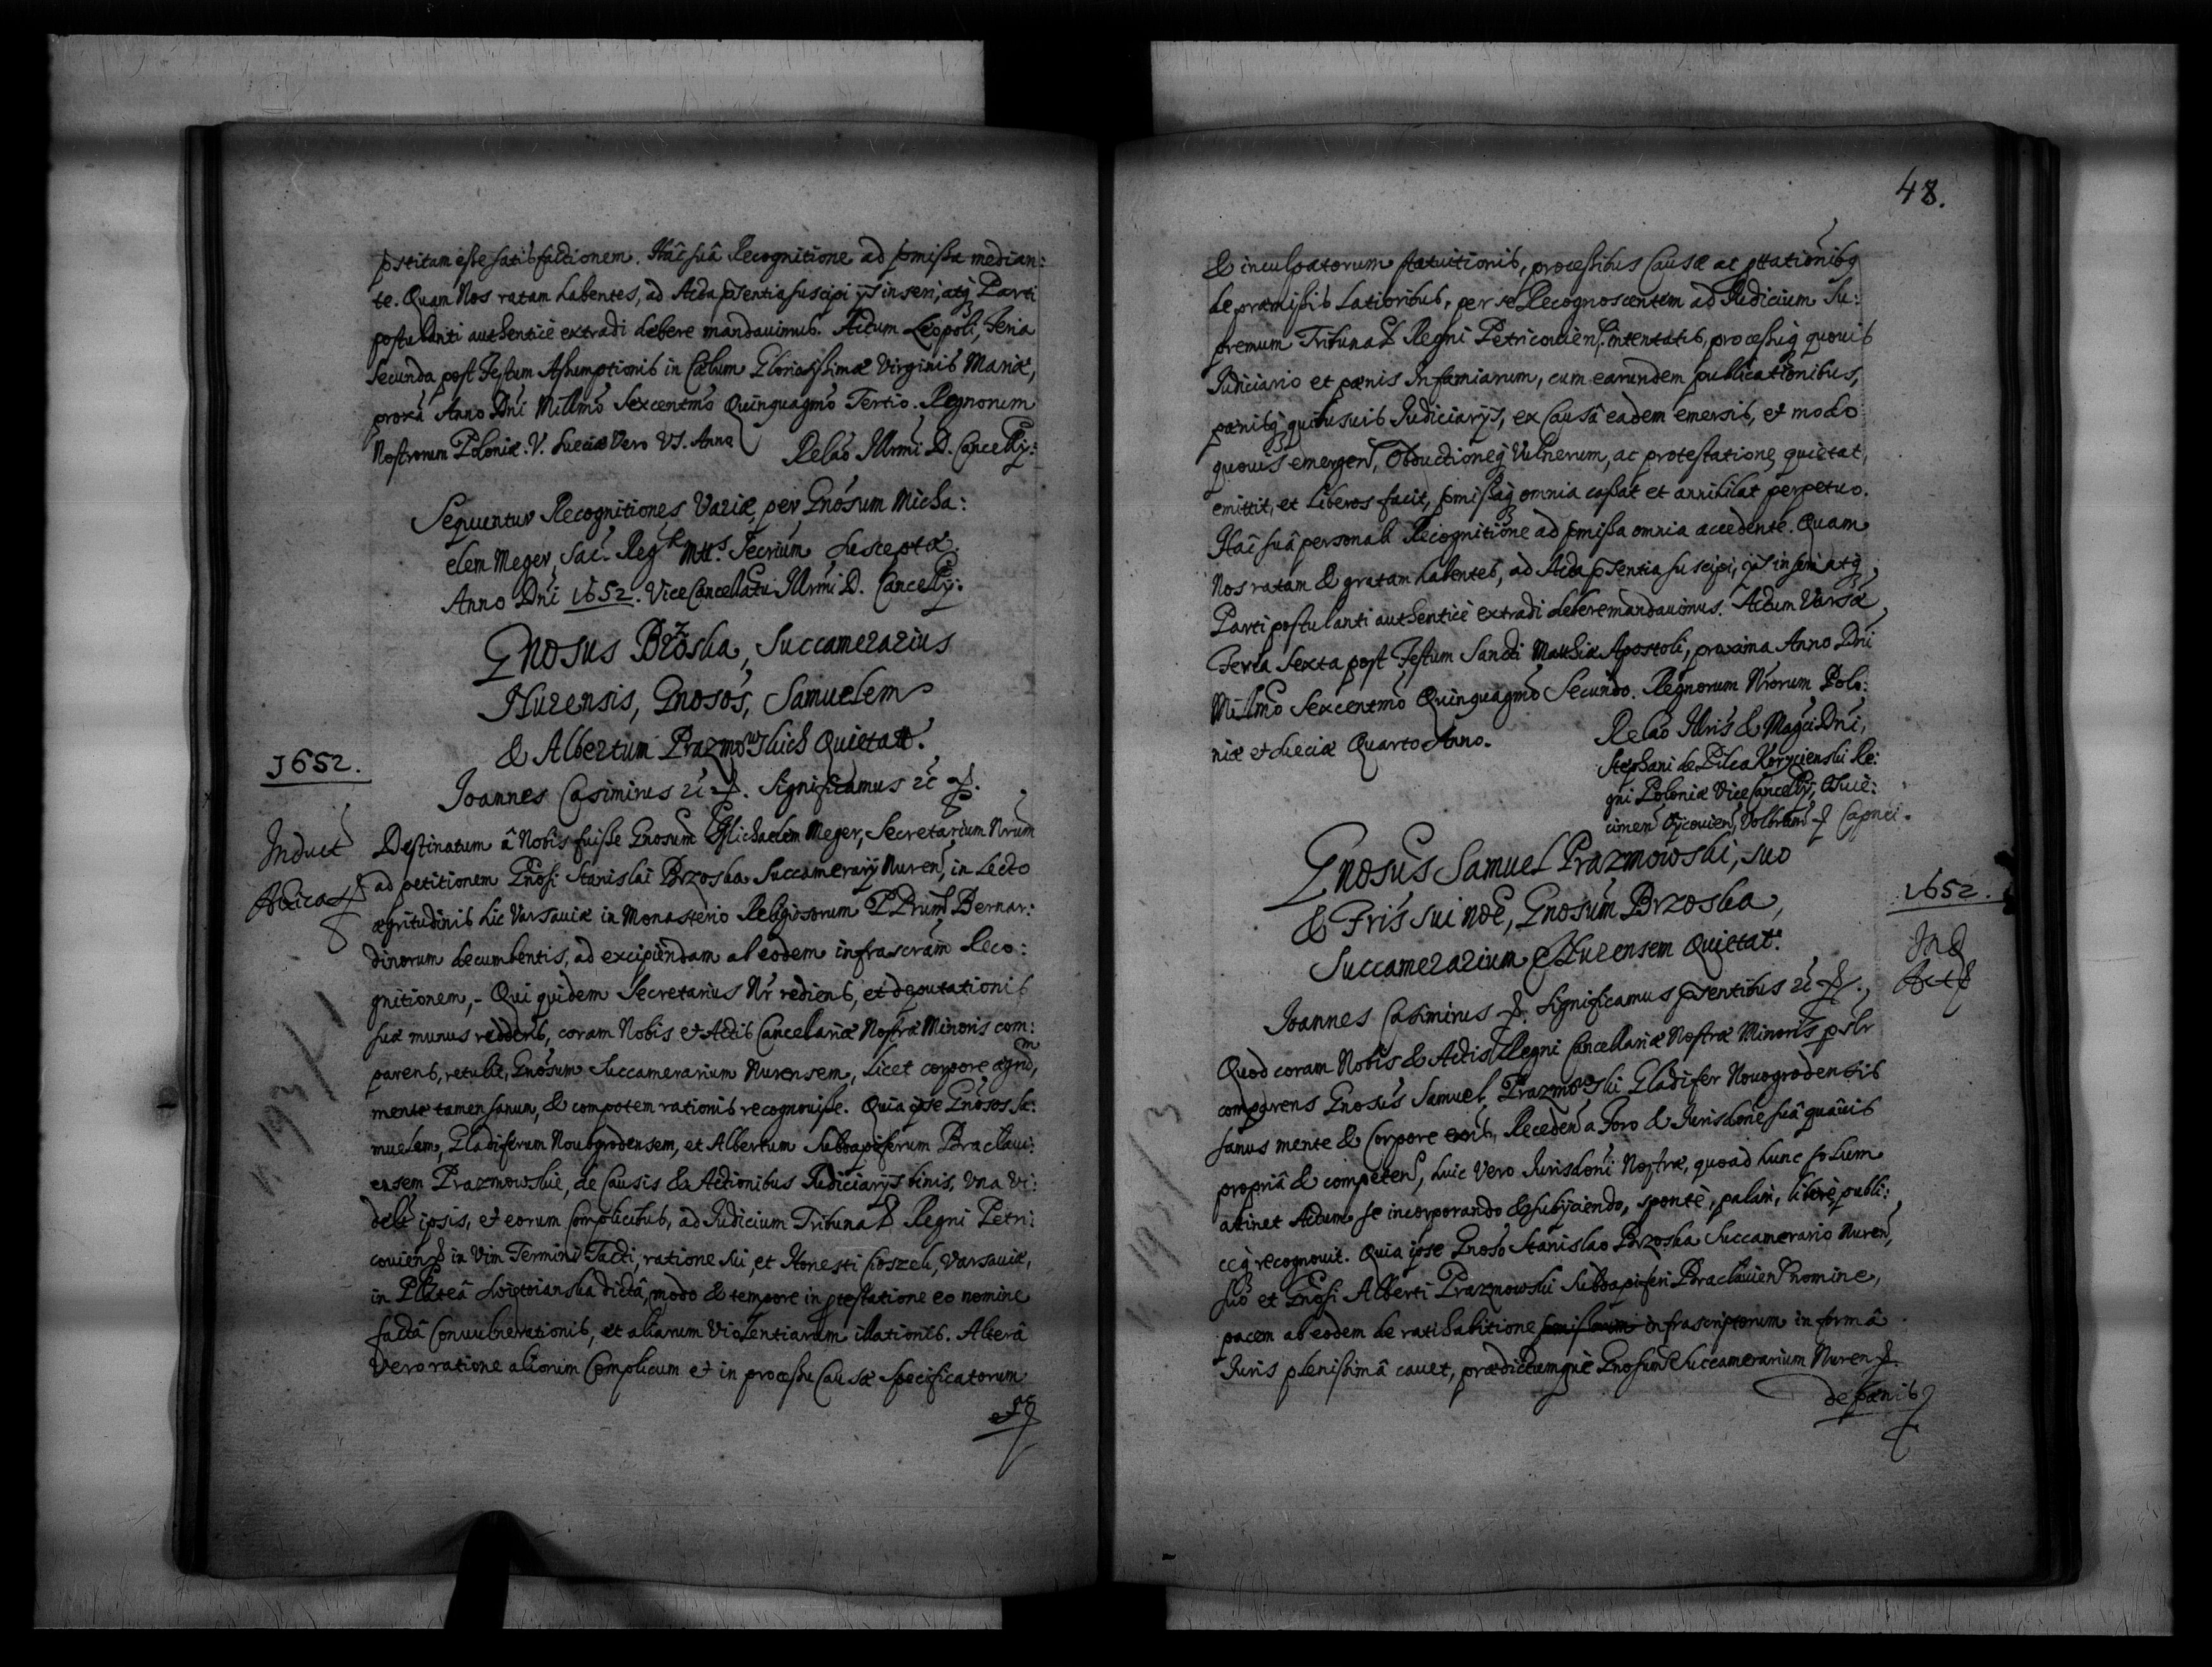 pstitam esse satisfactionem. Hac suâ Recognitione ad pmissa median:
te. Quam Nos ratam habentes, ad Acta psentia suscipi ijs inseri, atq Parti
postulanti authenticè extradi debere mandavimus. Actum Leopoli, Feria
secunda post Festum Assumptionis in Cœlum Gloriosissimæ Virginis Mariæ,
proxa Anno Dni Millmo Sexcentmo Quinquagmo Tertio. Regnorum
Nostrorum Poloniæ. V. Sueciæ Vero VI. Anno
Relao Illrmi D. Cancellrij:
Sequuntur Recognitiones Variæ, per Gnosum Micha:
elem Meger, Sac. Reg Mtts Secrium susceptæ.
Anno Dni 1652. Vice Cancellatu Illrmi D. Cancellrij:
Gnosus Brzoska, Succamerarius
Nurensis, Gnosos, Samuelem
& Albertum Prazmowskich Quietat.
1652.
Joannes Casimirus etc. Significamus etc.
Induct
Destinatum â Nobis fuisse Gnosum Michaelem Meger, Secretarium Nrum
ad petitionem Gnosi Stanislai Brzoska Succamerarij Nuren, in Lecto
ægritudinis hic Varsaviæ in Monasterio Religiosorum P Prum Bernar:
dinorum decumbentis, ad excipiendam ab eodem infrascram Reco:
gnitionem,- Qui quidem Secretarius Nr rediens, et deputationis
suæ munus reddens, coram Nobis et Actis Cancellariæ Nostræ Minoris com:
parens, retulit, Gnosum Succamerarium Nurensem, Licet corpore ægrum,
mente tamen sanum, & compotem rationis recognovisse. Quia ipse Gnosos Sa:
muelem, Gladiferum Novogrodensem, et Albertum Subdapiferum Braclavi:
ensem Prazmowskie, de Causis & Actionibus Judiciarijs binis, Una Vi:
delt ipsis, et eorum Complicibus, ad Judicium Tribunal Regni Petri:
covien in Vim Termini Tacti, ratione sui, et Honesti Coszek, Varsaviæ,
in Plateâ Swiętorianska dictâ, modo & tempore in ptestatione eo nomine
factâ Convulnerationis, et aliarum Violentiarum illationis. Alterâ
Vero ratione aliorum Complicum et in processu Causæ specificatorum
48.
& inculpatorum statuitionis, processibus Causæ ac pttationibq
de præmissis Latioribus, per se Recognoscentem ad Judicium Su:
premum Tribunal Regni Petricovien. intentatis, processuq quovis
Judiciario et pœnis Infamiarum, cum earundem publicationibus,
pœnisq quibusvis Judiciarijs, ex Causâ eadem emersis, et modo
quovis emergen, Obductioneq Vulnerum, ac protestatione quietat,
emittit, et Liberos facit, pmissaq omnia cassat et annihilat perpetuo.
Hac suâ personali Recognitione ad pmissa omnia accedente. Quam
Nos ratam & gratam habentes, ad Acta psentia suscipi, ijs inseri atq,
Parti postulanti authenticè extradi debere mandavimus. Actum Varsæ,
Feria Sexta post Festum Sancti Matthiæ Apostoli, proxima Anno Dni
Millmo Sexcentmo Quinquagmo Secundo. Regnorum Nrorum Polo:
niæ et Sueciæ Quarto Anno.
Relao Illris & Magci Dni,
Stephani de Pilca Korycienski Re:
gni Poloniæ Vice Cancellrij, Oswie:
cimen Oycovien, Volbram Capnei.
Gnosus Samuel Prazmowski, suo
& Fris sui noe, Gnosum Brzoska,
Succamerarium Nurensem Quietat.
1652.
Ind
Act
Joannes Casimirus. Significamus psentibus etc.,
Quod coram Nobis & Actis Regni Cancellariæ Nostræ Minoris pslr
comparens Gnosus Samuel Prazmowski Gladifer Novogrodensis
sanus mente & Corpore exis, Receden a Foro & Jurisdone suâ quâvis
propriâ & competen, huic Vero Jurisdoni Nostræ, quoad hunc solum
attinet Actum se incorporando & subijciendo, spontè, palàm, liberè publi:
ceq recognovit. Quia ipse Gnoso Stanislao Brzoska Succamerario Nuren,
suo et Gnosi Alberti Prazmowski Subdapiferi Braclavien nomine,
pacem ab eodem de ratihabitione infrascriptorum in formâ
Juris plenissimâ cavet, prædictumquè Gnosum Succamerarium Nuren.
de pœnis